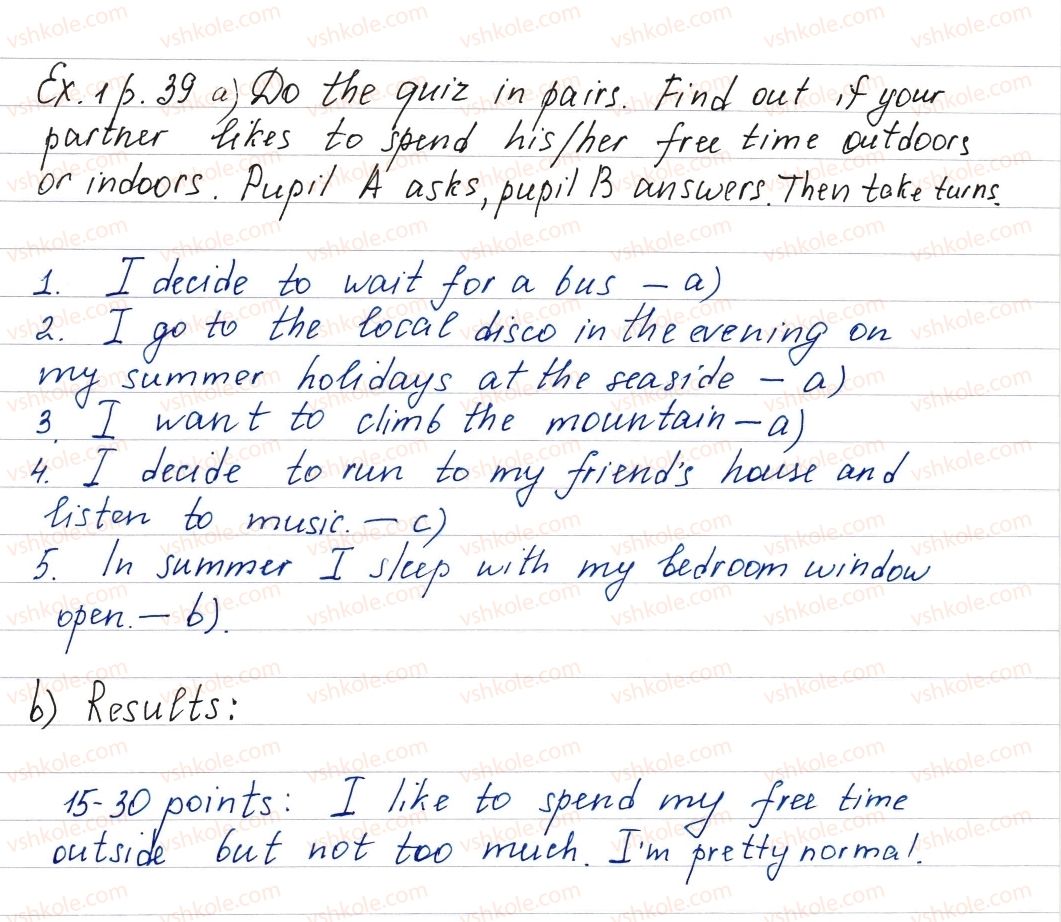 Ex. 1 p. 39 a) Do the quiz in pairs. Find out if your
partner likes to spend his/her free time outdoors
or indoors. Pupil A asks, pupil B answers. Then take turns.
1. I decide to wait for a bus - a)
2. I go to the local disco in the evening on
my summer holidays at the seaside - a)
3. I want to climb the mountain - a)
4. I decide to run to my friend's house and
listen to music. - c)
5. In summer I sleep with my bedroom window
open. - b).
b) Results:
15-30 points: I like to spend my free time
outside but not too much. I'm pretty normal.
vshkole.com